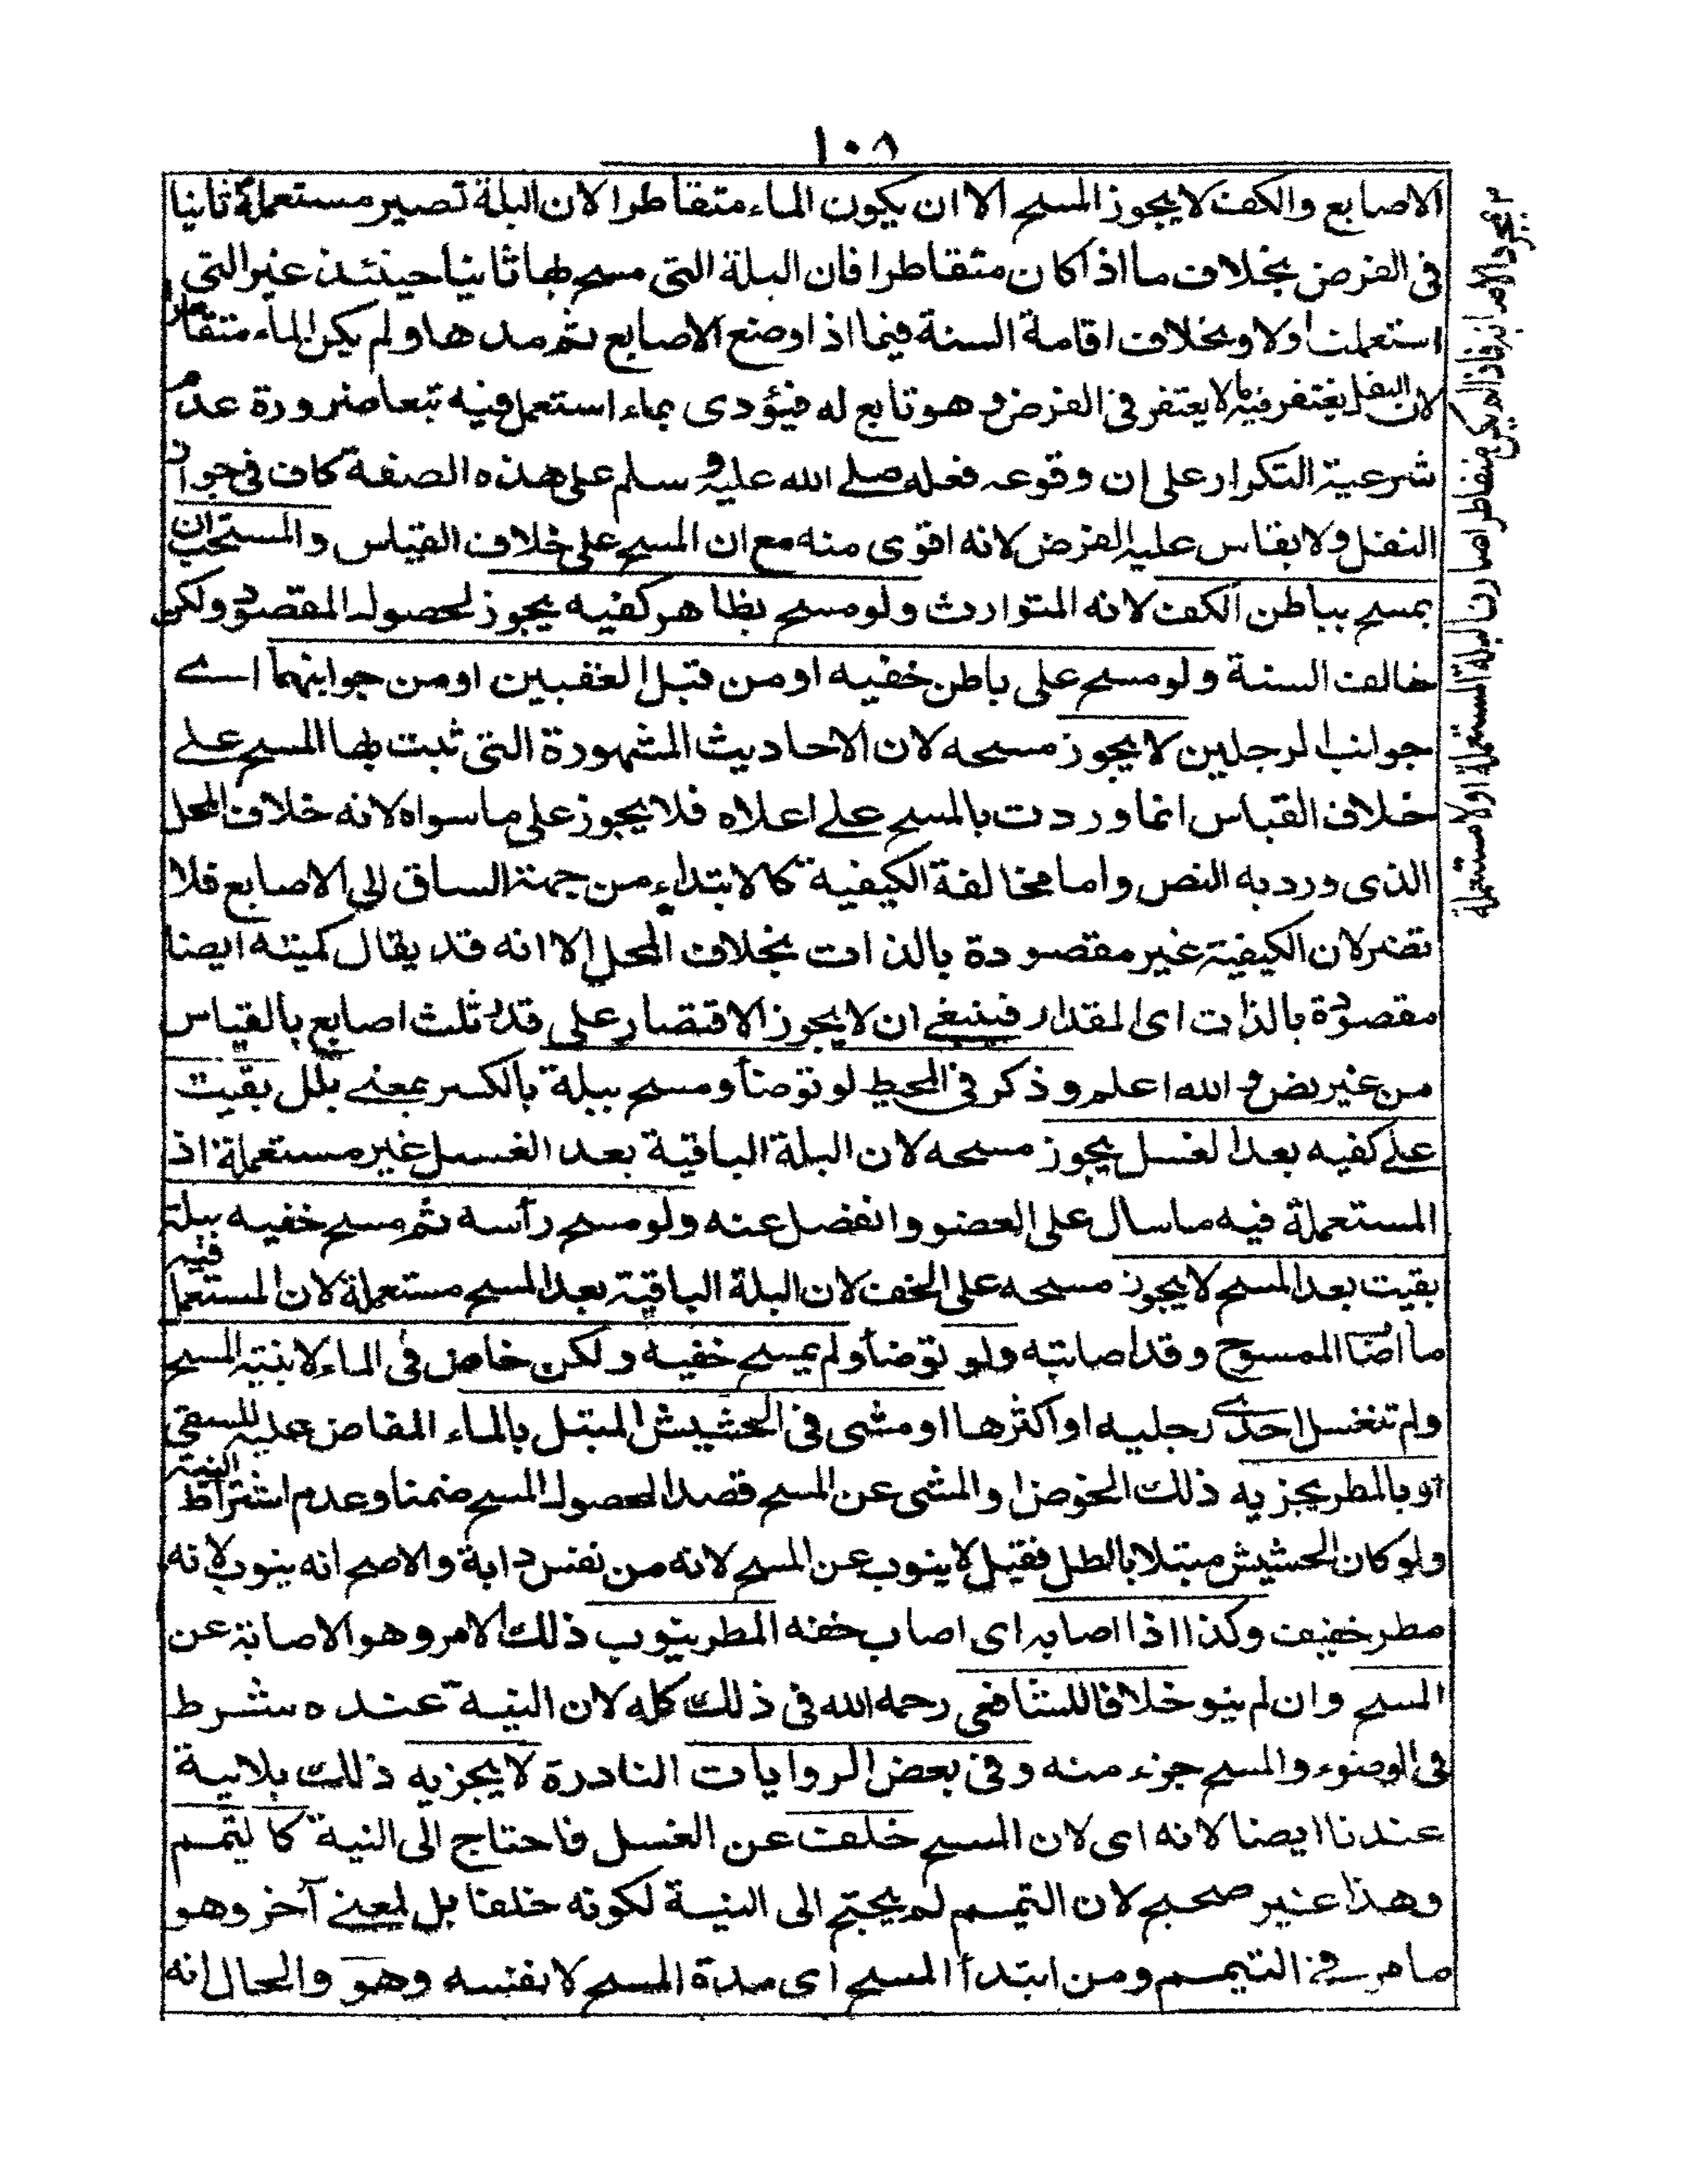 ١٠٨
الاصابع والكف لا يجوز المسح الا ان يكون الماء متقاطرا لان البلة تصير مستعملة ثانيا
فى الفرض بخلاف ما اذا كان متقاطرا فان البلة التى مسح بها ثانيا حينئذ غير التى
استعملت اولا وبخلاف اقامة السنة فيما اذا وضع الاصابع ثم مدها ولم يكن الماء متقاطرا
لان النفل يغتفر فيه ما لا يغتفر فى الفرض وهو تابع له فيؤدى بماء استعمل فيه تبعا ضرورة عدم
شرعية التكرار على ان وقوعه فعله صلے الله عليه و سلم على هذه الصفة كاف فى جواز
النفل ولا يقاس عليه الفرض لانه اقوى منه مع ان المسح على خلاف القياس والمستحب ان
يمسح بباطن الكف لانه المتوارث ولو مسح بظاهر كفيه يجوز لحصول المقصود ولكن
خالف السنة ولو مسح على باطن خفيه او من قبل العقبين او من جوانبهما اے
جوانب الرجلين لا يجوز مسحه لان الاحاديث المشهورة التى ثبت بها المسح علے
خلاف القياس انما وردت بالمسح علے اعلاه فلا يجوز على ما سواه لانه خلاف المحل
الذى ورد به النص واما مخالفة الكيفية كالابتداء من جهة الساق الى الاصابع فلا
تضر لان الكيفية غير مقصودة بالذات بخلاف المحل الا انه قد يقال كميته ايضا
مقصودة بالذات اى المقدار فينبغے ان لا يجوز الاقتصار على قدر ثلث اصابع بالقياس
من غير نص و الله اعلم وذكر فى المحيط لو توضأ ومسح ببلة بالكسر بمعنے بلل بقيت
علے كفيه بعد الغسل يجوز مسحه لان البلة الباقية بعد الغسل غير مستعملة اذ
المستعملة فيه ما سال على العضو وانفصل عنه ولو مسح رأسه ثم مسح خفيه ببلة
بقيت بعد المسح لا يجوز مسحه على الخف لان البلة الباقية بعد المسح مستعملة لان المستعمل فيه
ما اصاب الممسوح وقد اصابته ولو توضأ ولم يمسح خفيه ولكن خاض فى الماء لا بنية المسح
ولم تنغسل احدے رجليه او اكثرها او مشى فى الحشيش المبتل بالماء المفاض عليه للسقى
او بالمطر يجزيه ذلك الخوض او المشى عن المسح قصدا لحصول المسح ضمنا وعدم اشتراط النية
ولو كان الحشيش مبتلا بالطل فقيل لا ينوب عن المسح لانه من نفس دابة والاصح انه ينوب لانه
مطر خفيف وكذا اذا اصابه اى اصاب خفه المطر ينوب ذلك الامر وهو الاصابة عن
المسح وان لم ينو خلافا للشافعى رحمه الله فى ذلك كله لان النية عنده شرط
فى الوضوء والمسح جزء منه وفى بعض الروايات النادرة لا يجزيه ذلك بلا نية
عندنا ايضا لانه اى لان المسح خلف عن الغسل فاحتاج الى النية كالتيمم
وهذا غير صحيح لان التيمم لم يحتج الى النية لكونه خلفا بل لمعنے آخر وهو
ما مر فے التيمم ومن ابتدأ المسح اى مدة المسح لا بنفسه وهو والحال انه
بمجرد الامرار فاذا لم يكن متقاطرا صارت البلة المستعملة اولا مستعملة